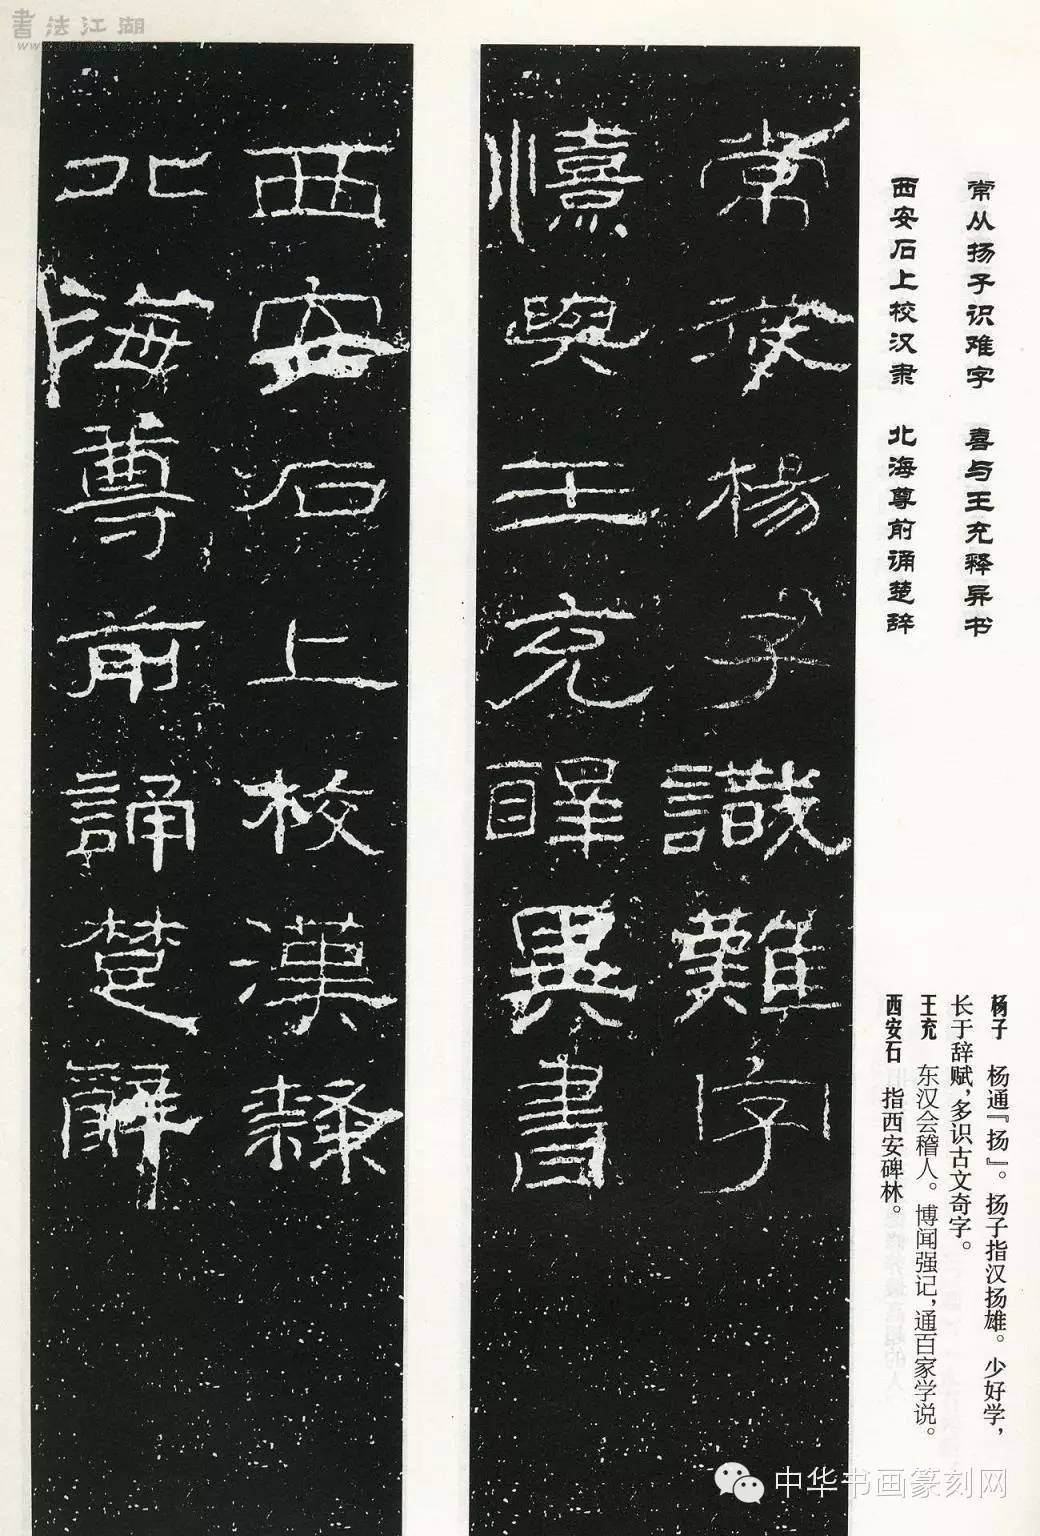 書法江湖
常從楊子識難字
憙與王充釋異書
西安石上校漢隸
北海尊前誦楚辭
常从扬子识难字 喜与王充释异书
西安石上校汉隶 北海尊前诵楚辞
杨子 杨通『扬』。扬子指汉扬雄。少好学，
长于辞赋，多识古文奇字。
王充 东汉会稽人。博闻强记，通百家学说。
西安石 指西安碑林。
中华书画篆刻网